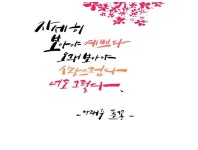 자세히
보아야 예쁘다
오래 보아야
사랑스럽다
너도 그렇다.
- 나태주 풀꽃 -